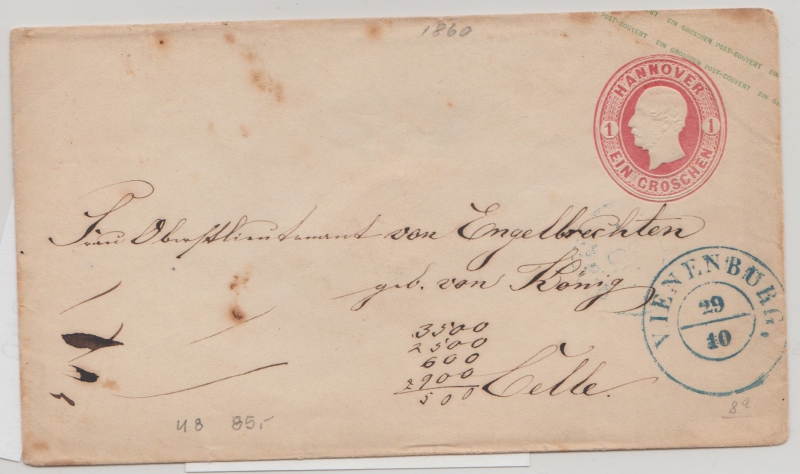 1860
EIN GROSCHEN POST-COUVERT EIN
EIN GROSCHEN POST-COUVERT EIN
HANNOVER
1 1
EIN GROSCHEN
Frau Oberstlieutenant von Engelbrechten
geb. von König,
VIENENBURG.
29
10
3500
2500
600
2900
500
Celle.
8a
U8 85,-